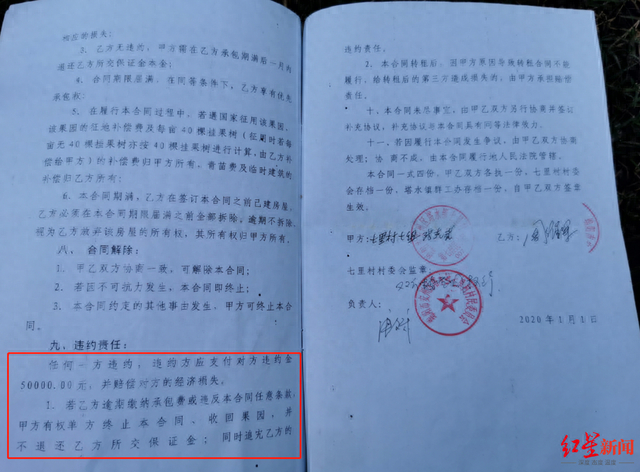 相应的损失；
3、乙方无违约，甲方需在乙方承包期满后一月内
退还乙方所交保证金本金；
4、合同期限届满，在同等条件下，乙方享有优先
承包权；
5、在履行本合同过程中，若遇国家征用该果园，
该果园的征地补偿费及每亩40棵挂果树（征氰时若每
亩无40棵挂果树亦按40棵挂果树进行计算，由乙方补
偿给甲方）的补偿费归甲方所有。青苗费及临时建筑的
补偿归乙方所有；
6、本合同期满，乙方在签订本合同之前已建房屋，
乙方必须在本合同期限届满之前全部拆除，逾期不拆除
视为乙方放弃该房屋的所有权，其所有权归甲方所有。
八、合同解除：
1、甲乙双方协商一致，可解除本合同；
2、若因不可抗力发生，本合同即终止；
3、本合同约定的其他事由发生，甲方可终止本合
同。
九、违约责任：
任何一方违约，违约方应支付对方违约金
50000.00元，并赔偿对方的经济损失。
1、若乙方逾期缴纳承包费或违反本合同任意条款，
甲方有权单方终止本合同、收回果园，并
不退还乙方所交保证金；同时追究乙方的
违约责任。
2、本合同转租后，因甲方果因导致转租合同不能
履行，给转租后的第三方造成损失的，由甲方承担赔偿
责任。
十、本合同未尽事宜，由甲乙双方另行协商并签订
补充协议，补充协议与本合同具有同等法律效力。
十一、若因履行本合同发生争议，由甲乙双方协商
处理；协商不成，由本合同履行地人民法院管辖。
本合同一式四份，甲乙双方各执一份，七里村村委
会存档一份，塔水镇群工办存档一份，自甲乙双方签章
生效。
甲方：七里村七组
乙方：
七里村村委会监章：
负责人：
2020年1月1日
红星新闻